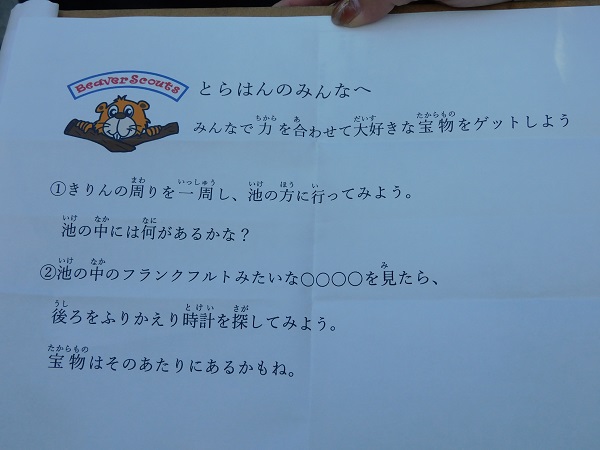 Beaver Scouts
とらはんのみんなへ
みんなで力を合わせて大好きな宝物をゲットしよう
①きりんの周りを一周し、池の方に行ってみよう。
池の中には何があるかな？
②池の中のフランクフルトみたいな○○○○を見たら、
後ろをふりかえり時計を探してみよう。
宝物はそのあたりにあるかもね。